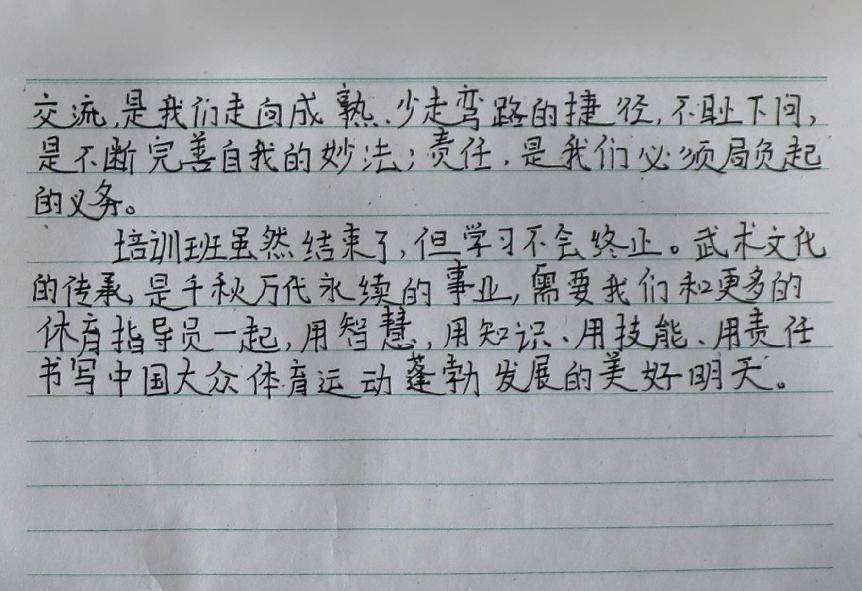 交流，是我们走向成熟、少走弯路的捷径，不耻下问，
是不断完善自我的妙法；责任，是我们必须肩负起
的义务。
培训班虽然结束了，但学习不会终止。武术文化
的传承是千秋万代永续的事业，需要我们和更多的
体育指导员一起，用智慧，用知识、用技能、用责任
书写中国大众体育运动蓬勃发展的美好明天。